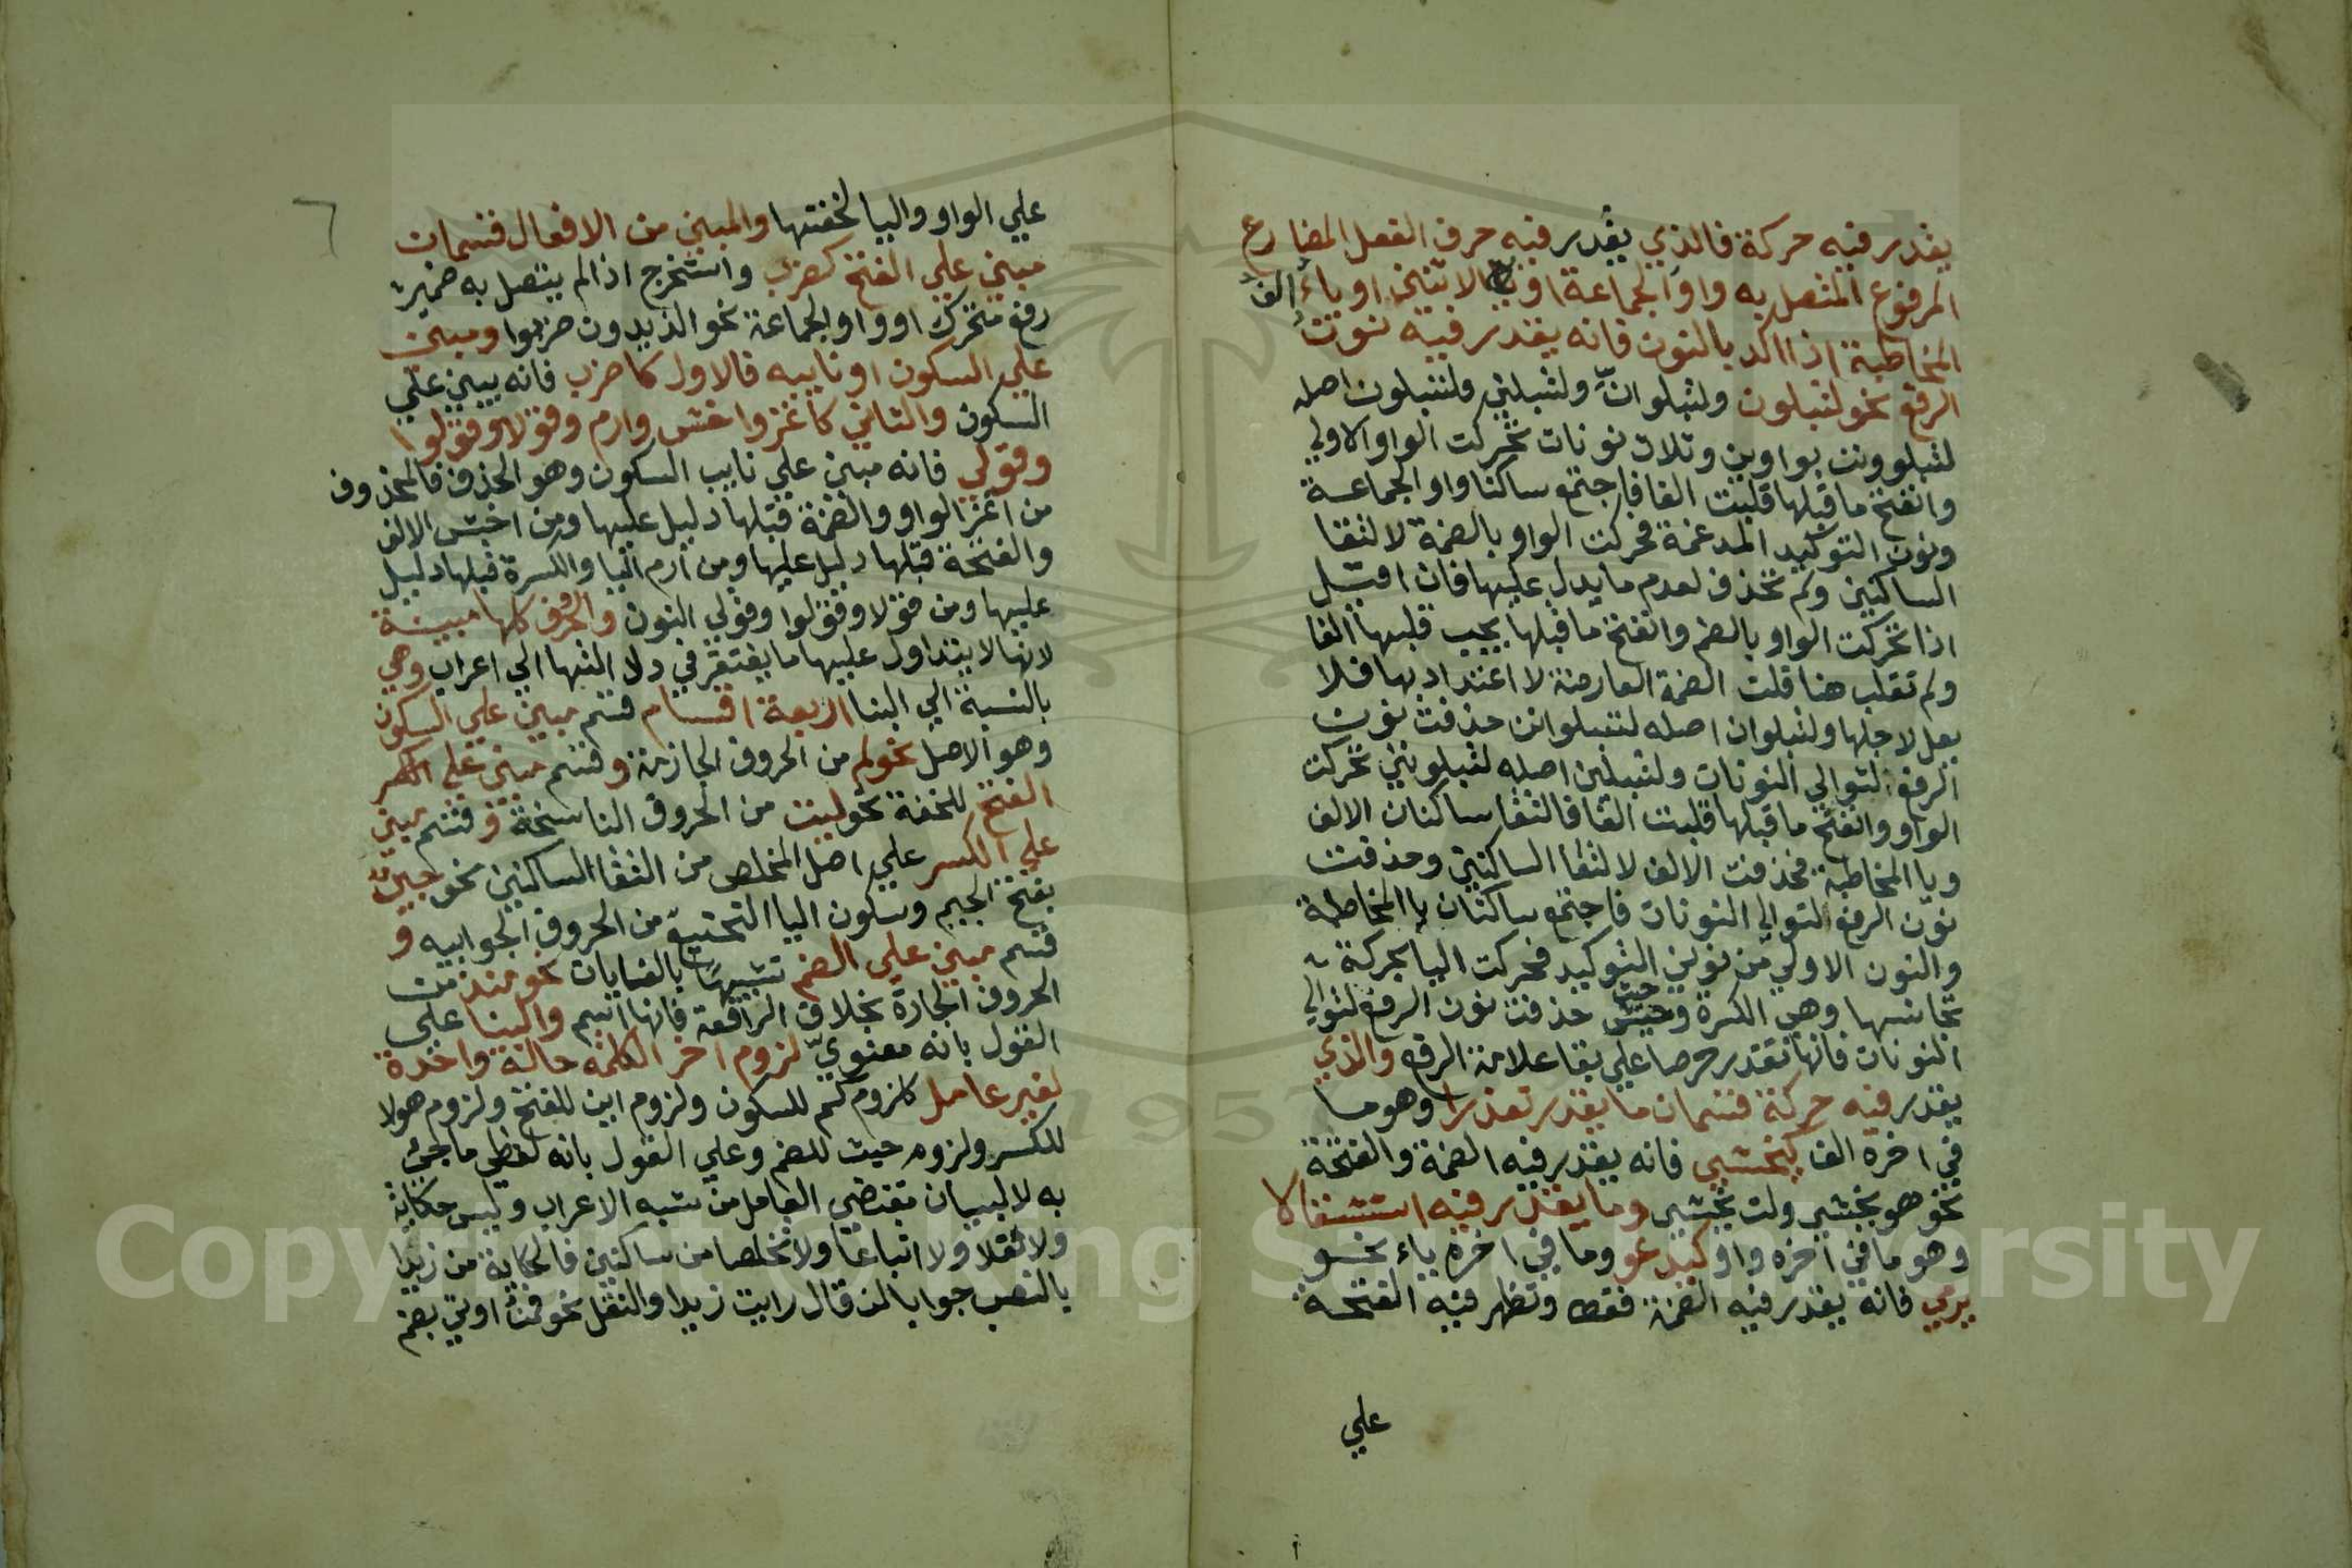 يقدر فيه حركة فالذي يقدر فيه حرف الفعل المضارع
المرفوع المتصل به واو الجماعة او الاثنين او ياء الف
المخاطبة اذا اكد بالنون فانه يقدر فيه نون
الرفع نحو لتبلون ولتبلوانّ ولتبلين ولتبلون اصله
لتبلوونن بواوين وثلاث نونات تحركت الواو الاولي
وانفتح ما قبلها قلبت الفا فاجتمع ساكنا واو الجماعة
ونون التوكيد المدغمة فحركت الواو بالضمة لالتقا
الساكنين ولم تحذف لعدم ما يدل عليها فان اقيل
اذا تحركت الواو بالضم وانفتح ما قبلها يجب قلبها الفا
ولم تقلب هنا قلت الضمة العارضة لا اعتداد بها فلا
يعل لاجلها ولتبلوان اصله لتبلوانن حذفت نون
الرفع لتوالي النونات ولتبلين اصله لتبلوينن تحركت
الواو وانفتح ما قبلها قلبت الفا فالتقا ساكنان الالف
ويا المخاطبة فحذفت الالف لالتقا الساكنين وحذفت
نون الرفع لتوالي النونات فاجتمع ساكنان يا المخاطبة
والنون الاولي من نوني التوكيد فحركت اليا بحركة
تجانسها وهي الكسرة وحيث حذفت نون الرفع لتوالي
النونات فانها تقدر حرصا علي بقا علامة الرفع والذي
يقدر فيه حركة قسمان ما يقدر تعذرا وهو ما
في اخره الف كيخشي فانه يقدر فيه الضمة والفتحة
نحو هو يخشي ولن يخشي وما يقدر فيه استثقالا
وهو ما في اخره واو كيدعو وما في اخره ياء نحو
يرمي فانه يقدر فيه الضمة فقط وتظهر فيه الفتحة
علي
٦
علي الواو واليا لخفتها والمبني من الافعال قسمان
مبني علي الفتح كضرب واستخرج اذا لم يتصل به ضمير
رفع متحرك او واو الجماعة نحو الذيدون ضربوا ومبني
علي السكون او نايبه فالاول كاضرب فانه يبني علي
السكون والثاني كاغز واخش وارم وقولا وقولوا
وقولي فانه مبني علي نايب السكون وهو الحذف فالمحذوف
من اغز الواو والضمة قبلها دليل عليها ومن اخش الالف
والفتحة قبلها دليل عليها ومن ارم اليا والكسرة قبلها دليل
عليها ومن قولا وقولوا وقولي النون والحروف كلها مبنية
لانها لا يتداول عليها ما يفتقر في دلالتها الي اعراب وهي
بالنسبة الي البنا اربعة اقسام قسم مبني علي السكون
وهو الاصل نحو لم من الحروف الجازمة وقسم مبني علي
الفتح للخفة نحو ليت من الحروف الناسخة وقسم مبني
علي الكسر علي اصل المخلص من التقا الساكنين نحو جير
بفتح الجيم وسكون اليا التحتية من الحروف الجوابيه و
قسم مبني علي الضم تشبيها بالغايات نحو منذ من
الحروف الجارة بخلاف الرافعة فانها اسم والبنا علي
القول بانه معنوي لزوم اخر الكلمة حالة واحدة
لغير عامل كلزوم كم للسكون ولزوم اين للفتح ولزوم هولا
للكسر ولزوم حيث للضم وعلي القول بانه لفظي ما جئ
به لا لبيان مقتضي العامل من شبه الاعراب وليس حكاية
ولا نقلا ولا اتباعا ولا تخلصا من ساكنين فالحكاية من زيدا
بالنصب جوابا لمن قال رايت زيدا والنقل نحو فمن اوتي بضم
Copyright © King Saud University
1957